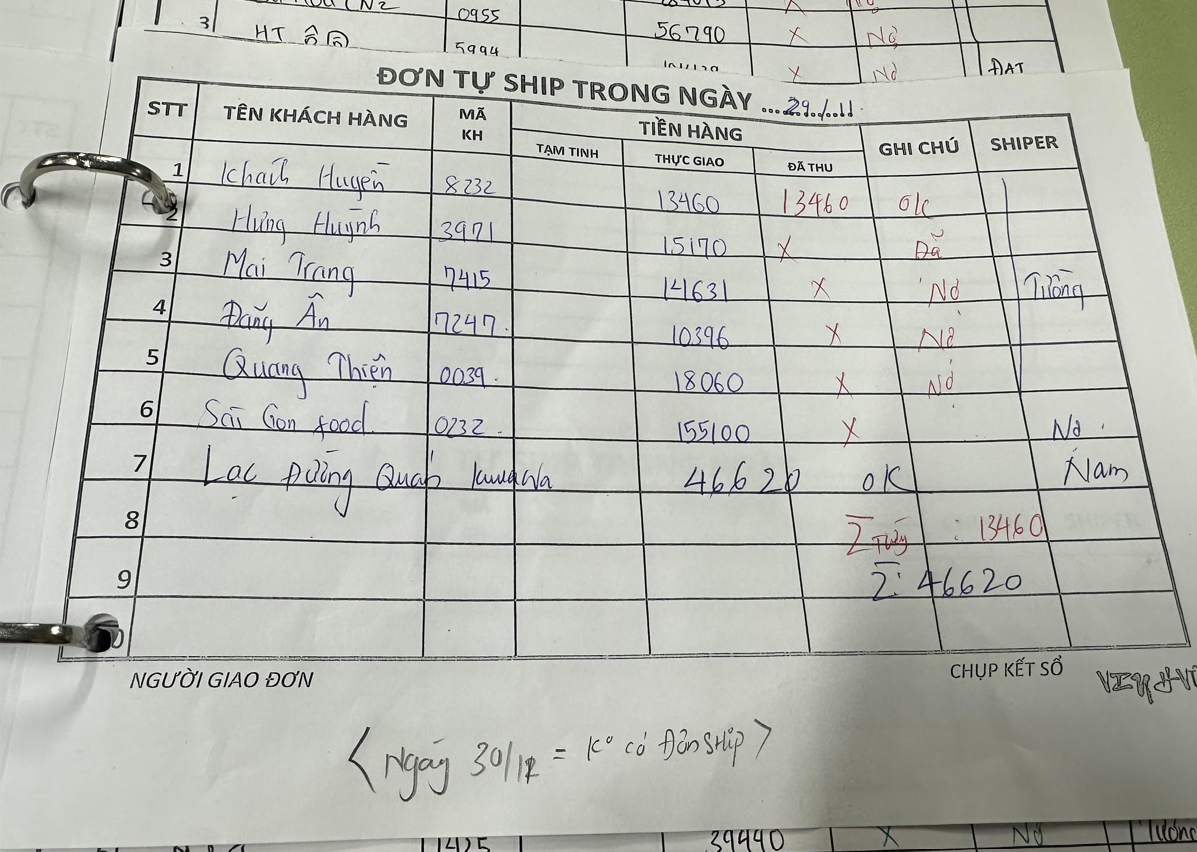 3 HT 0955 56790 X Nợ
5994 X Nợ ĐAT
ĐƠN TỰ SHIP TRONG NGÀY ....29../..11.
STT TÊN KHÁCH HÀNG MÃ KH TIỀN HÀNG GHI CHÚ SHIPER
TẠM TINH THỰC GIAO ĐÃ THU
1 Khách Huyền 8232 13460 13460 ok
2 Hưng Huỳnh 3971 15170 X Đã
3 Mai Trang 7415 14631 X Nợ Tường
4 Đăng Ân 7247. 10396 X Nợ
5 Quang Thiện 0039. 18060 X Nợ
6 Sài Gon food 0232. 155100 X Nợ.
7 Lạc Đường Quán 46620 OK Nam
8 Σ 13460
9 Σ: 46620
NGƯỜI GIAO ĐƠN CHỤP KẾT SỔ
< Ngày 30/11 = K° có Đơn SHIP >
11425 39440 X Nợ Tường